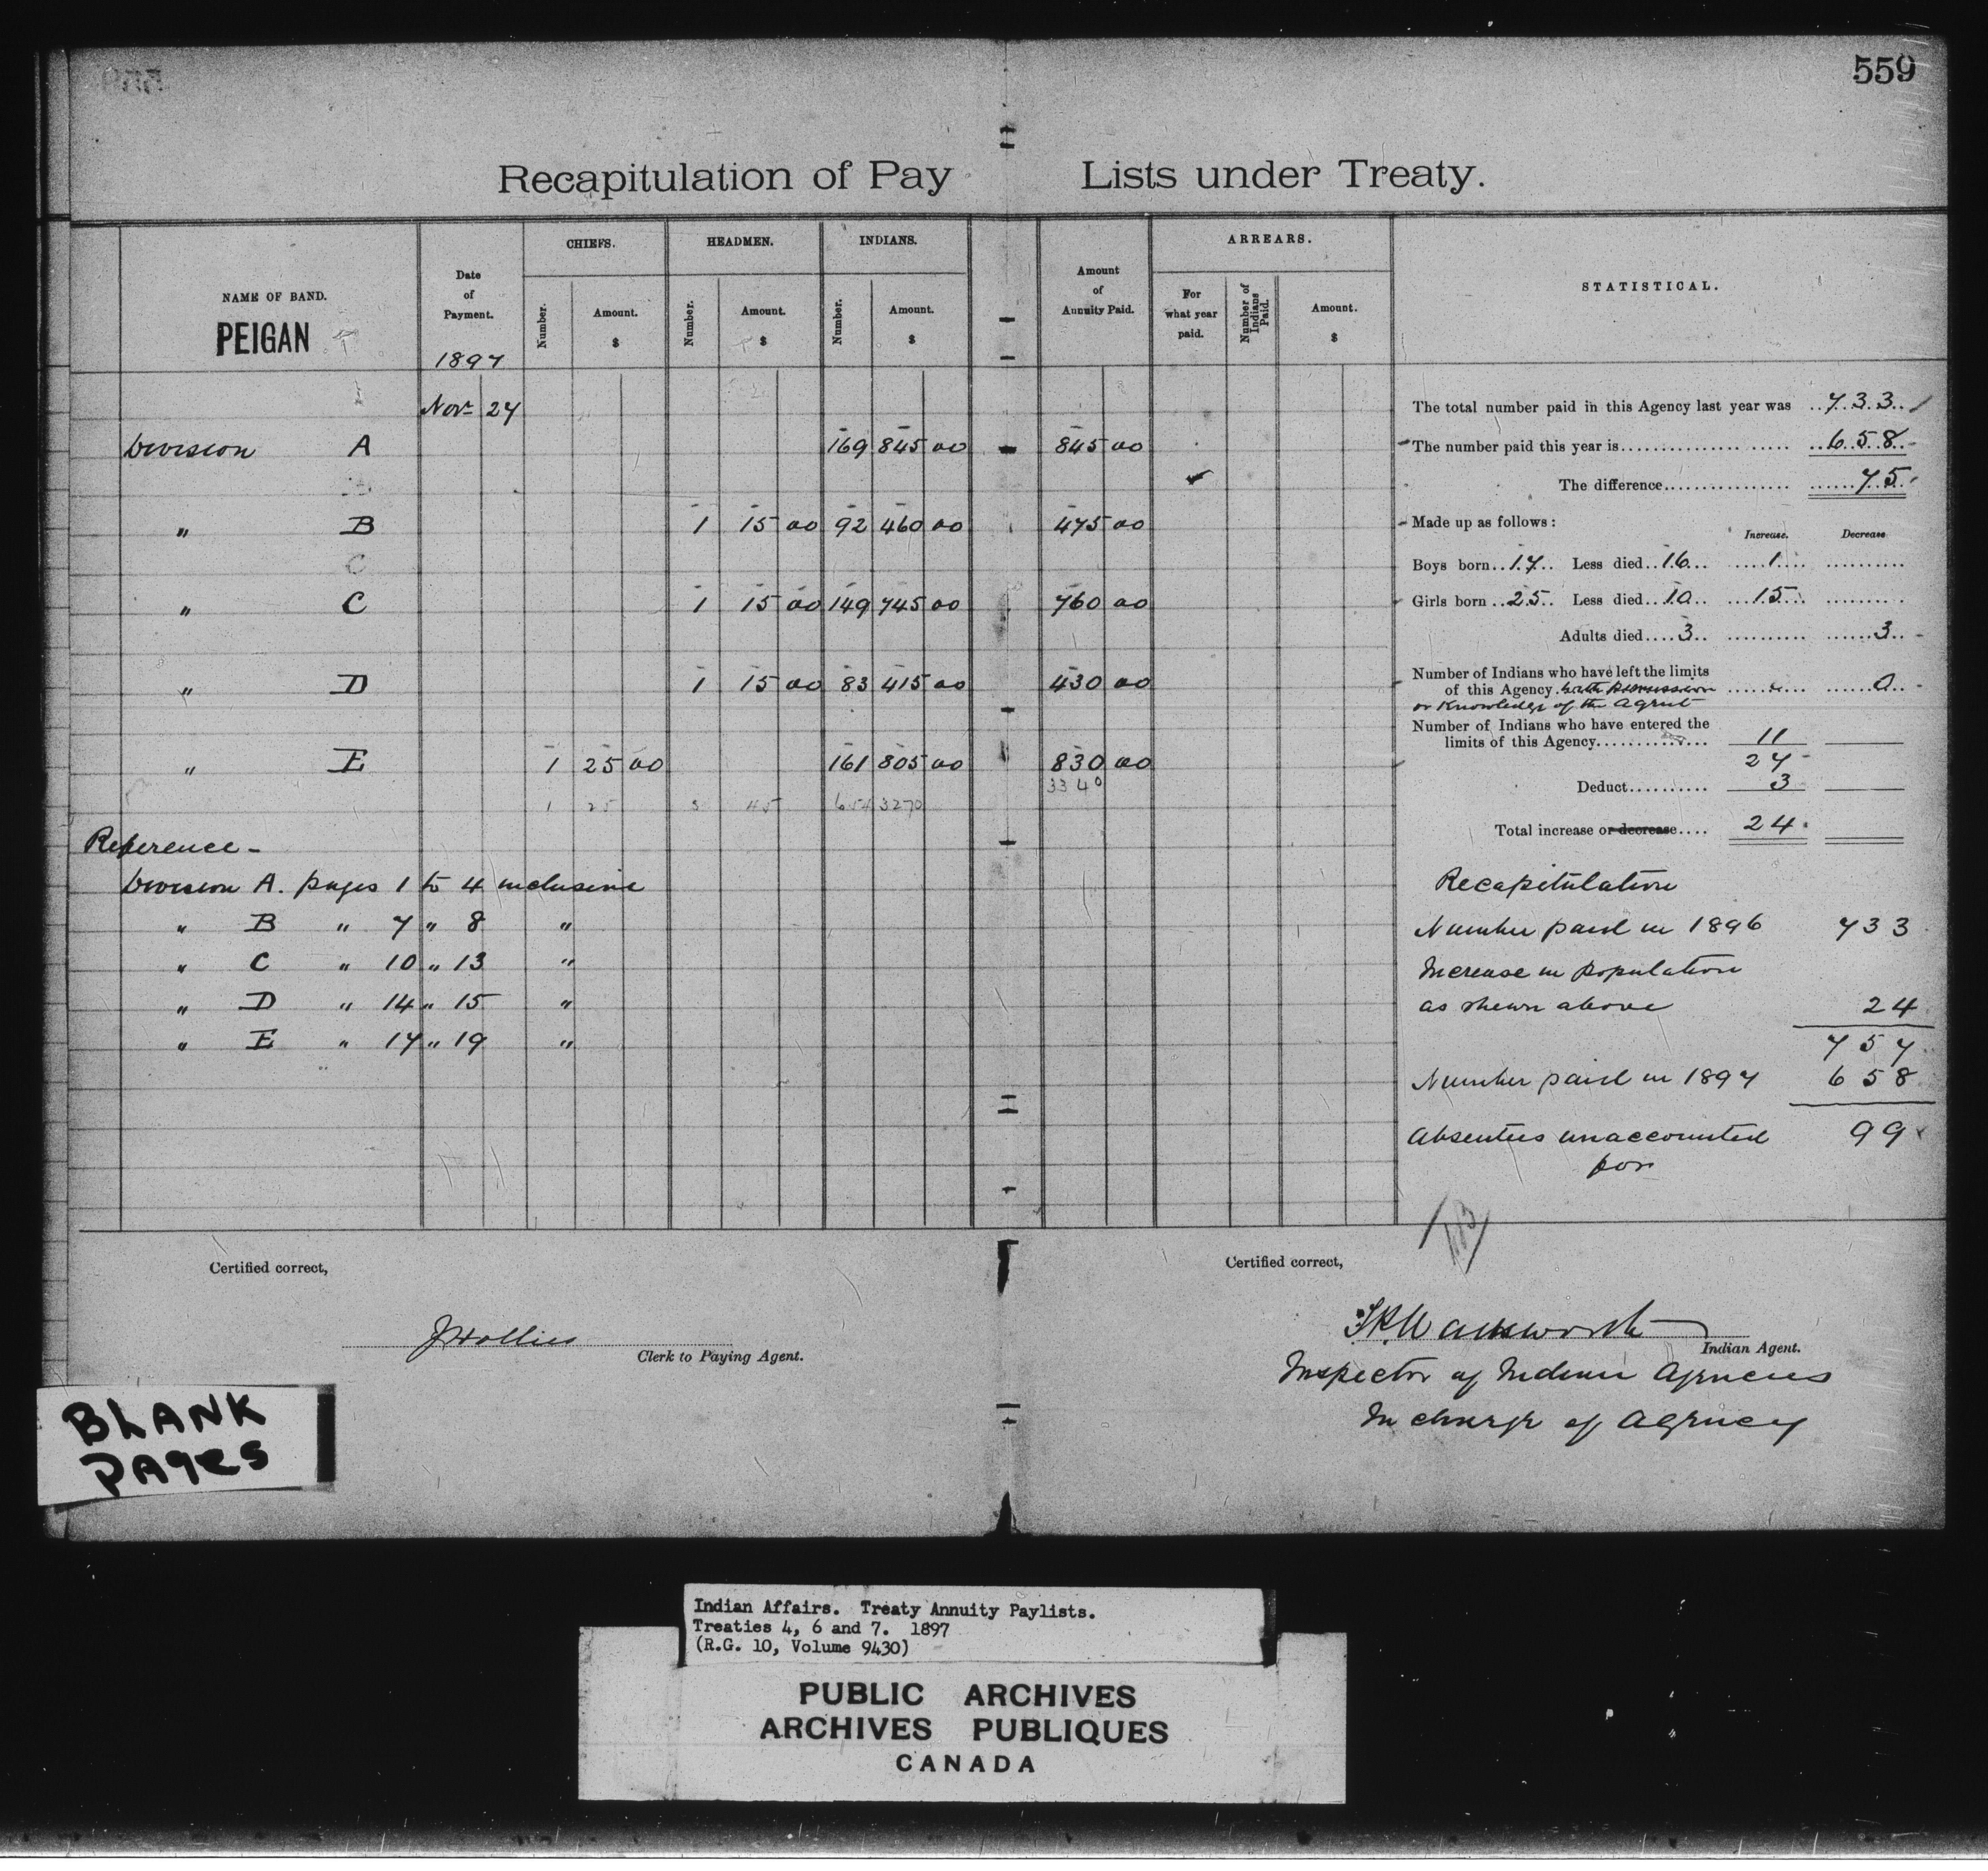 559
Recapitulation of Pay Lists under Treaty.
NAME OF BAND.
PEIGAN
Date of Payment.
1897
CHIEFS.
Number.
Amount.
$
HEADMEN.
Number.
Amount.
$
INDIANS.
Number.
Amount.
$
Amount of Annuity Paid.
ARREARS.
For what year paid.
Number of Indians Paid.
Amount.
$
STATISTICAL.
Novr 27
Division A 169 845 00 845 00
" B 1 15 00 92 460 00 475 00
" C 1 15 00 149 745 00 760 00
" D 1 15 00 83 415 00 430 00
" E 1 25 00 161 805 00 830 00
1 25 3 45 654 3270 3340
Reference -
Division A. pages 1 to 4 inclusive
" B " 7 " 8 "
" C " 10 " 13 "
" D " 14 " 15 "
" E " 17 " 19 "
The total number paid in this Agency last year was 733
The number paid this year is 658
The difference 75
Made up as follows:
Increase. Decrease
Boys born 17 Less died 16 1
Girls born 25 Less died 10 15
Adults died 3 3
Number of Indians who have left the limits
of this Agency with permission 0
or knowledge of the Agent
Number of Indians who have entered the
limits of this Agency 11
27
Deduct 3
Total increase or decrease 24
Recapitulation
Number paid in 1896 733
Increase in population
as shewn above 24
757
Number paid in 1897 658
Absentees unaccounted 99
for
Certified correct,
J Hollies
Clerk to Paying Agent.
Certified correct,
T.P. Wadsworth
Indian Agent.
Inspector of Indian Agencies
In charge of Agency
BLANK
PAGES
Indian Affairs. Treaty Annuity Paylists.
Treaties 4, 6 and 7. 1897
(R.G. 10, Volume 9430)
PUBLIC ARCHIVES
ARCHIVES PUBLIQUES
CANADA